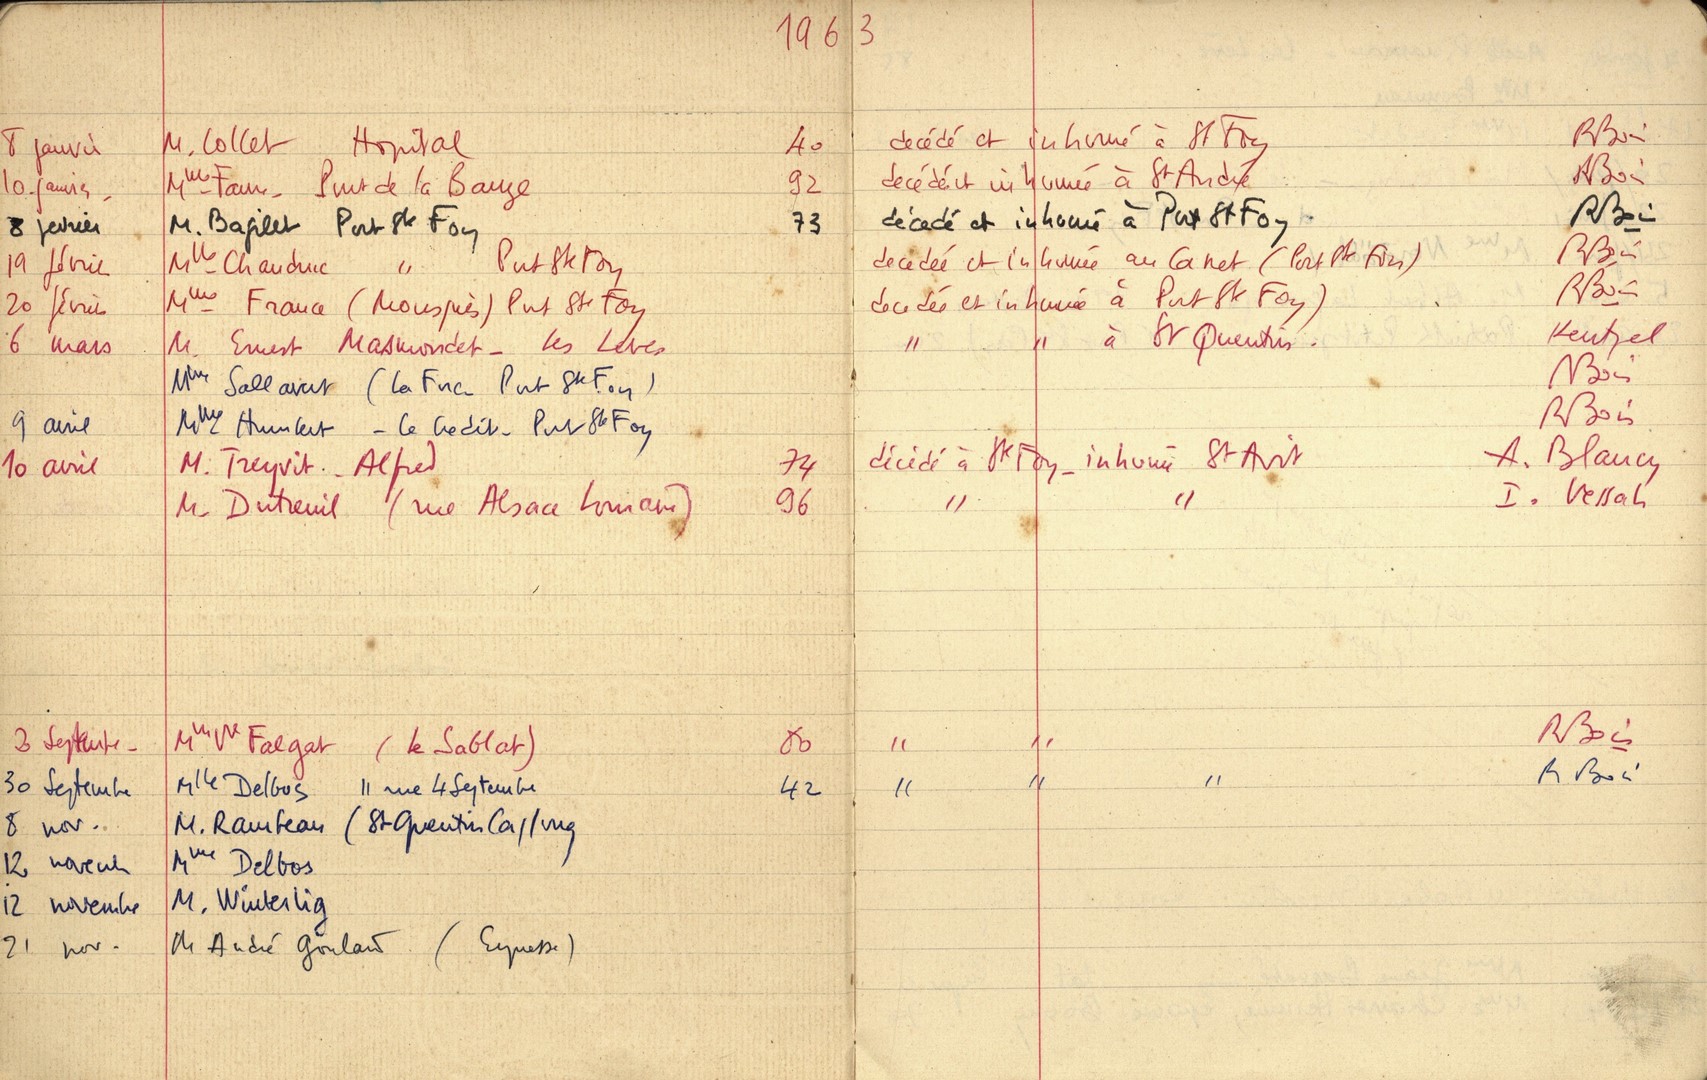 1963
8 janvier M. Collet Hopital 40 decédé et inhumé à St Foy RBois
10 janvier - Mme Faure - Pont de la Bauze 92 decédé et inhumée à St André RBois
8 fevrier M. Bagilet Port Ste Foy 73 décedé et inhumé à Port St Foy. RBois
19 février Mlle Chauduc " Port Ste Foy decedée et inhumée au Canet (Port Ste Foy) RBois
20 février Mme France (Mouspès) Port Ste Foy decedée et inhumée à Port Ste Foy) RBois
6 mars M. Ernest Masmondet - les Leves " " à St Quentin. Kentzel
Mme Sallavert (la Force Port Ste Foy) RBois
9 avril Mme Humbert - le Credit - Port Ste Foy RBois
10 avril M. Treyvit. - Alfred 74 décédé à Ste Foy - inhumé St Avit A. Blancy
M. Dutreuil (rue Alsace Lorraine) 96 " " I. Vessah
3 Septembre - Mme Vve Falgat (le Sablat) 80 " " RBois
30 Septembre Mlle Delbos 11 rue 4 Septembre 42 " " " R Bois
8 nov. M. Rambeau (St Quentin Caplong
12 novemb Mme Delbos
12 novembre M. Winterlig
21 nov. M André Goulard (Eynesse)